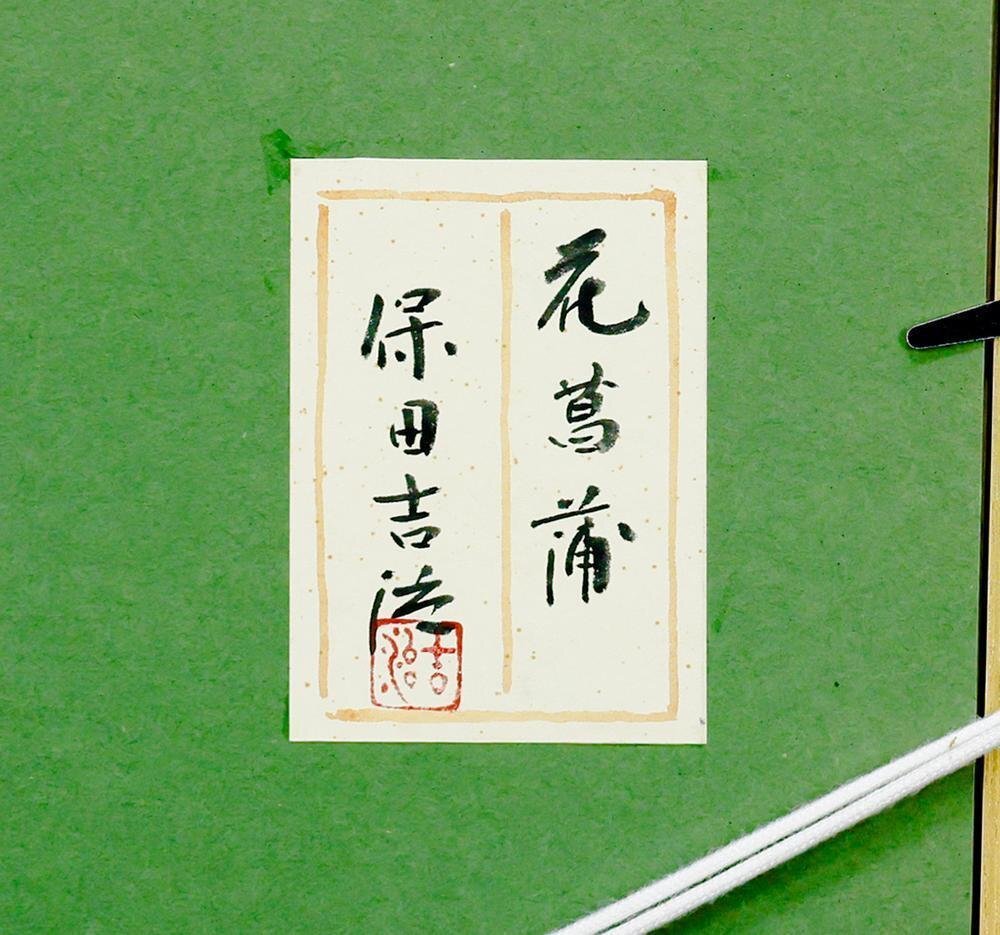 花菖蒲
保田吉治
吉治